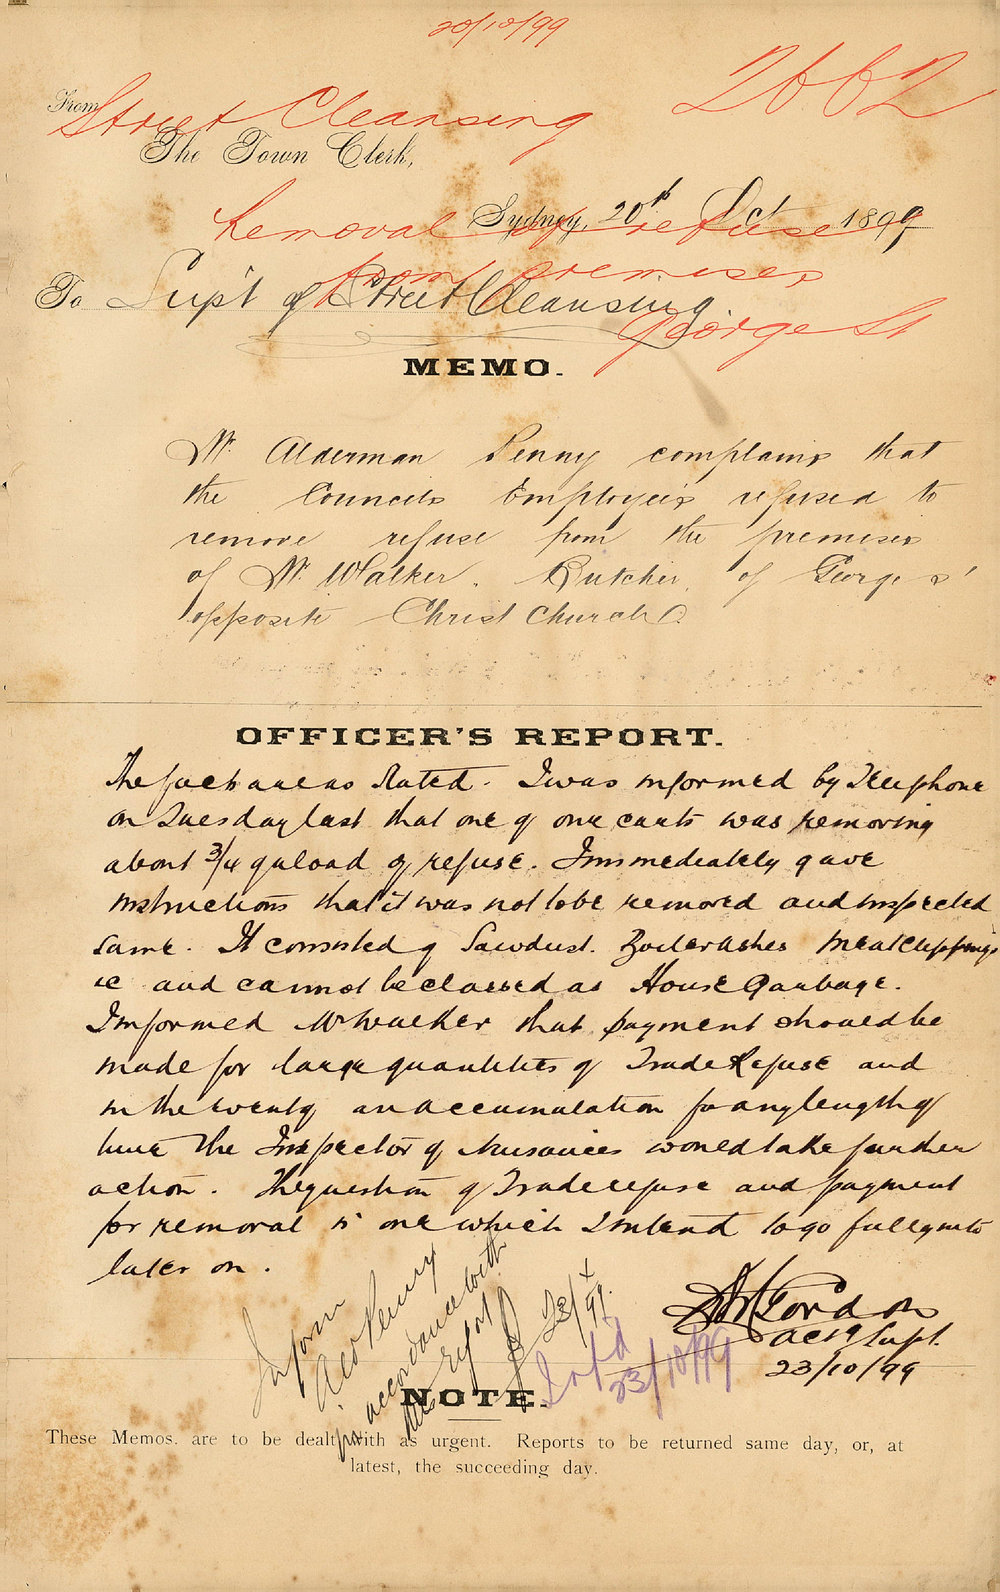 20/10/99
2662
From
Street Cleansing
The Town Clerk,
Sydney, 20th Oct 1899
Removal of refuse
from premises
George St
To Sup't of Street Cleansing.
MEMO.
Mr. Alderman Penny complains that
the Councils Employees refused to
remove refuse from the premises
of Mr. Walker. Butcher, of George s'
opposite Christ Church.
OFFICER'S REPORT.
The facts are as Stated. I was informed by Telephone
on Tuesday last that one of our carts was removing
about 3/4 of a load of refuse. I immediately gave
instructions that it was not to be removed and inspected
same. It consisted of Sawdust. Boiler ashes meat clippings
&c and cannot be classed as House Garbage.
I informed Mr Walker that payment should be
made for large quantities of Trade Refuse and
in the event of an accumulation for any length of
time the Inspector of Nusances would take further
action. The question of Trade refuse and payment
for removal is one which I intend to go fully into
later on.
Inform
Ald Penny
in accordance with
report
23/X/99.
Inf'd
23/10/99
Gordon
Actg Supt.
23/10/99
NOTE.
These Memos. are to be dealt with as urgent. Reports to be returned same day, or, at
latest, the succeeding day.